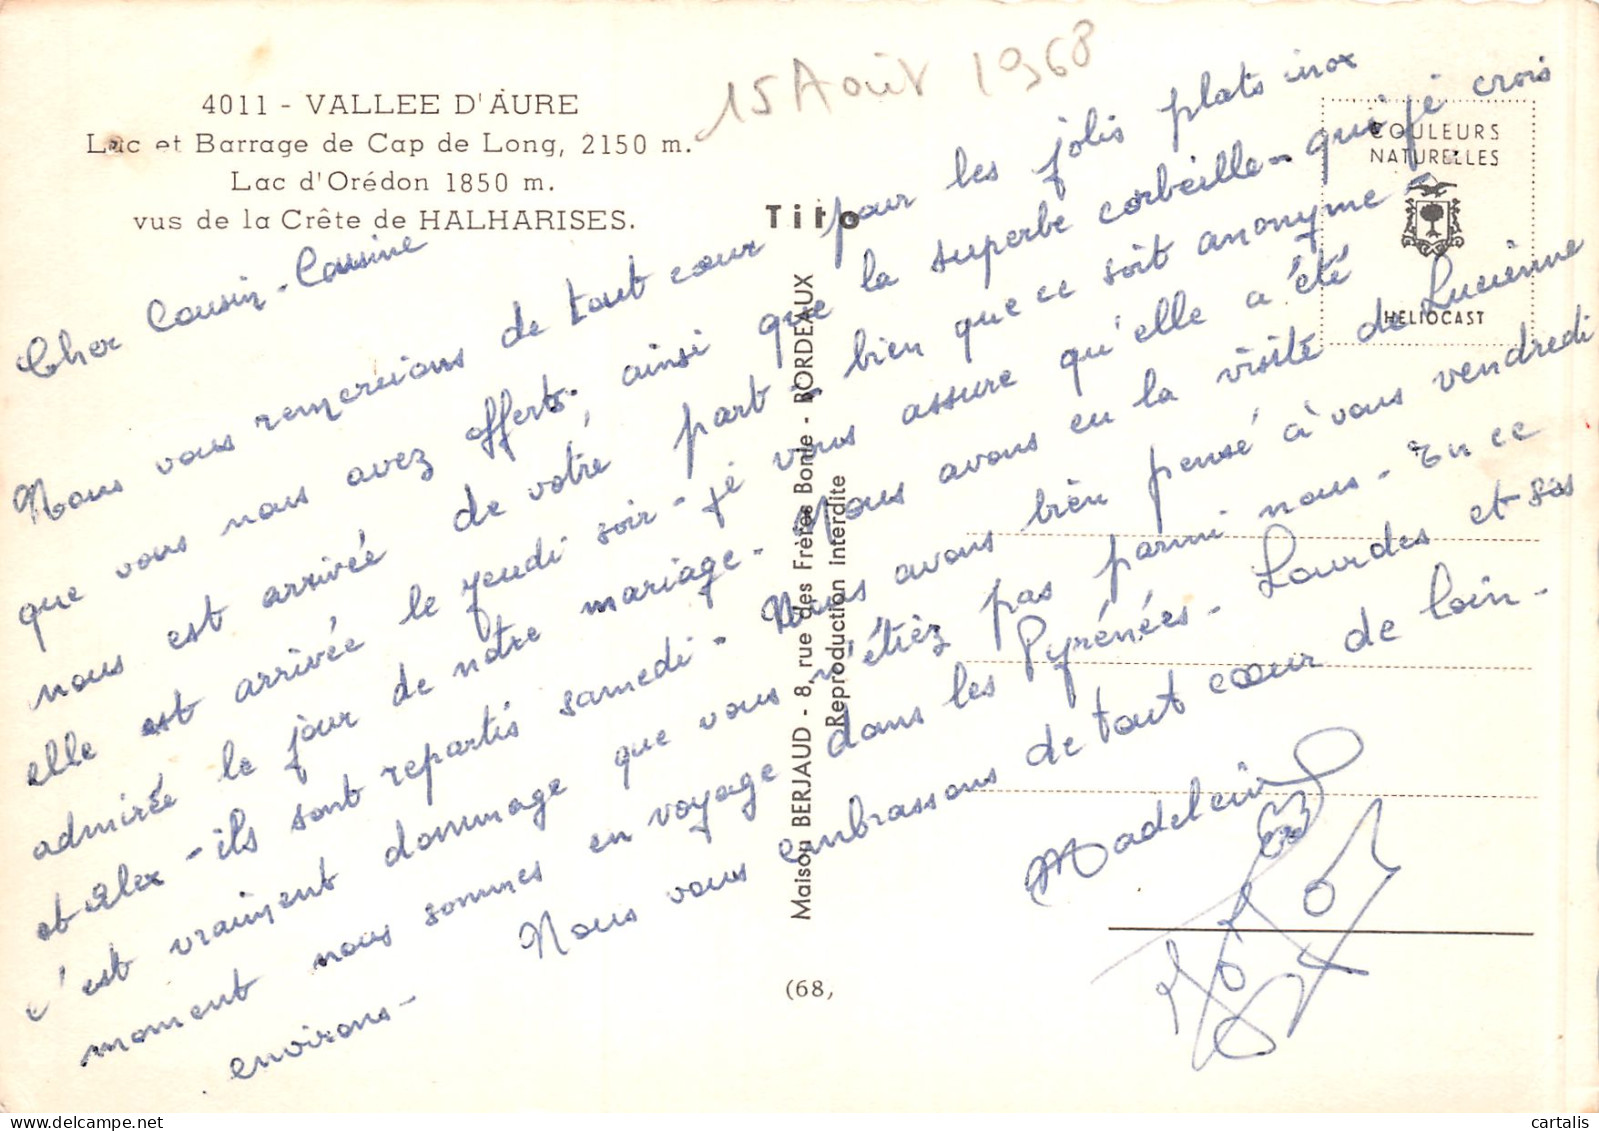 15 Août 1968
4011 - VALLEE D'AURE
Lac et Barrage de Cap de Long, 2150 m.
Lac d'Orédon 1850 m.
vus de la Crête de HALHARISES.
Tito
COULEURS
NATURELLES
HELIOCAST
Maison BERJAUD - 8, rue des Frères Bonie - BORDEAUX
Reproduction interdite
(68,
Cher Cousin - Cousine
Nous vous remercions de tout cœur pour les jolis plats inox
que vous nous avez offerts, ainsi que la superbe corbeille - qui je crois
nous est arrivée de votre part - bien que ce soit anonyme -
elle est arrivée le jeudi soir - je vous assure qu'elle a été
admirée le jour de notre mariage - Nous avons eu la visite de Lucienne
et Alex - ils sont repartis samedi - Nous avons bien pensé à vous vendredi
c'est vraiment dommage que vous n'étiez pas parmi nous - En ce
moment nous sommes en voyage dans les Pyrénées - Lourdes et ses
environs -
Nous vous embrassons de tout cœur de loin -
Madeleine
cartalis